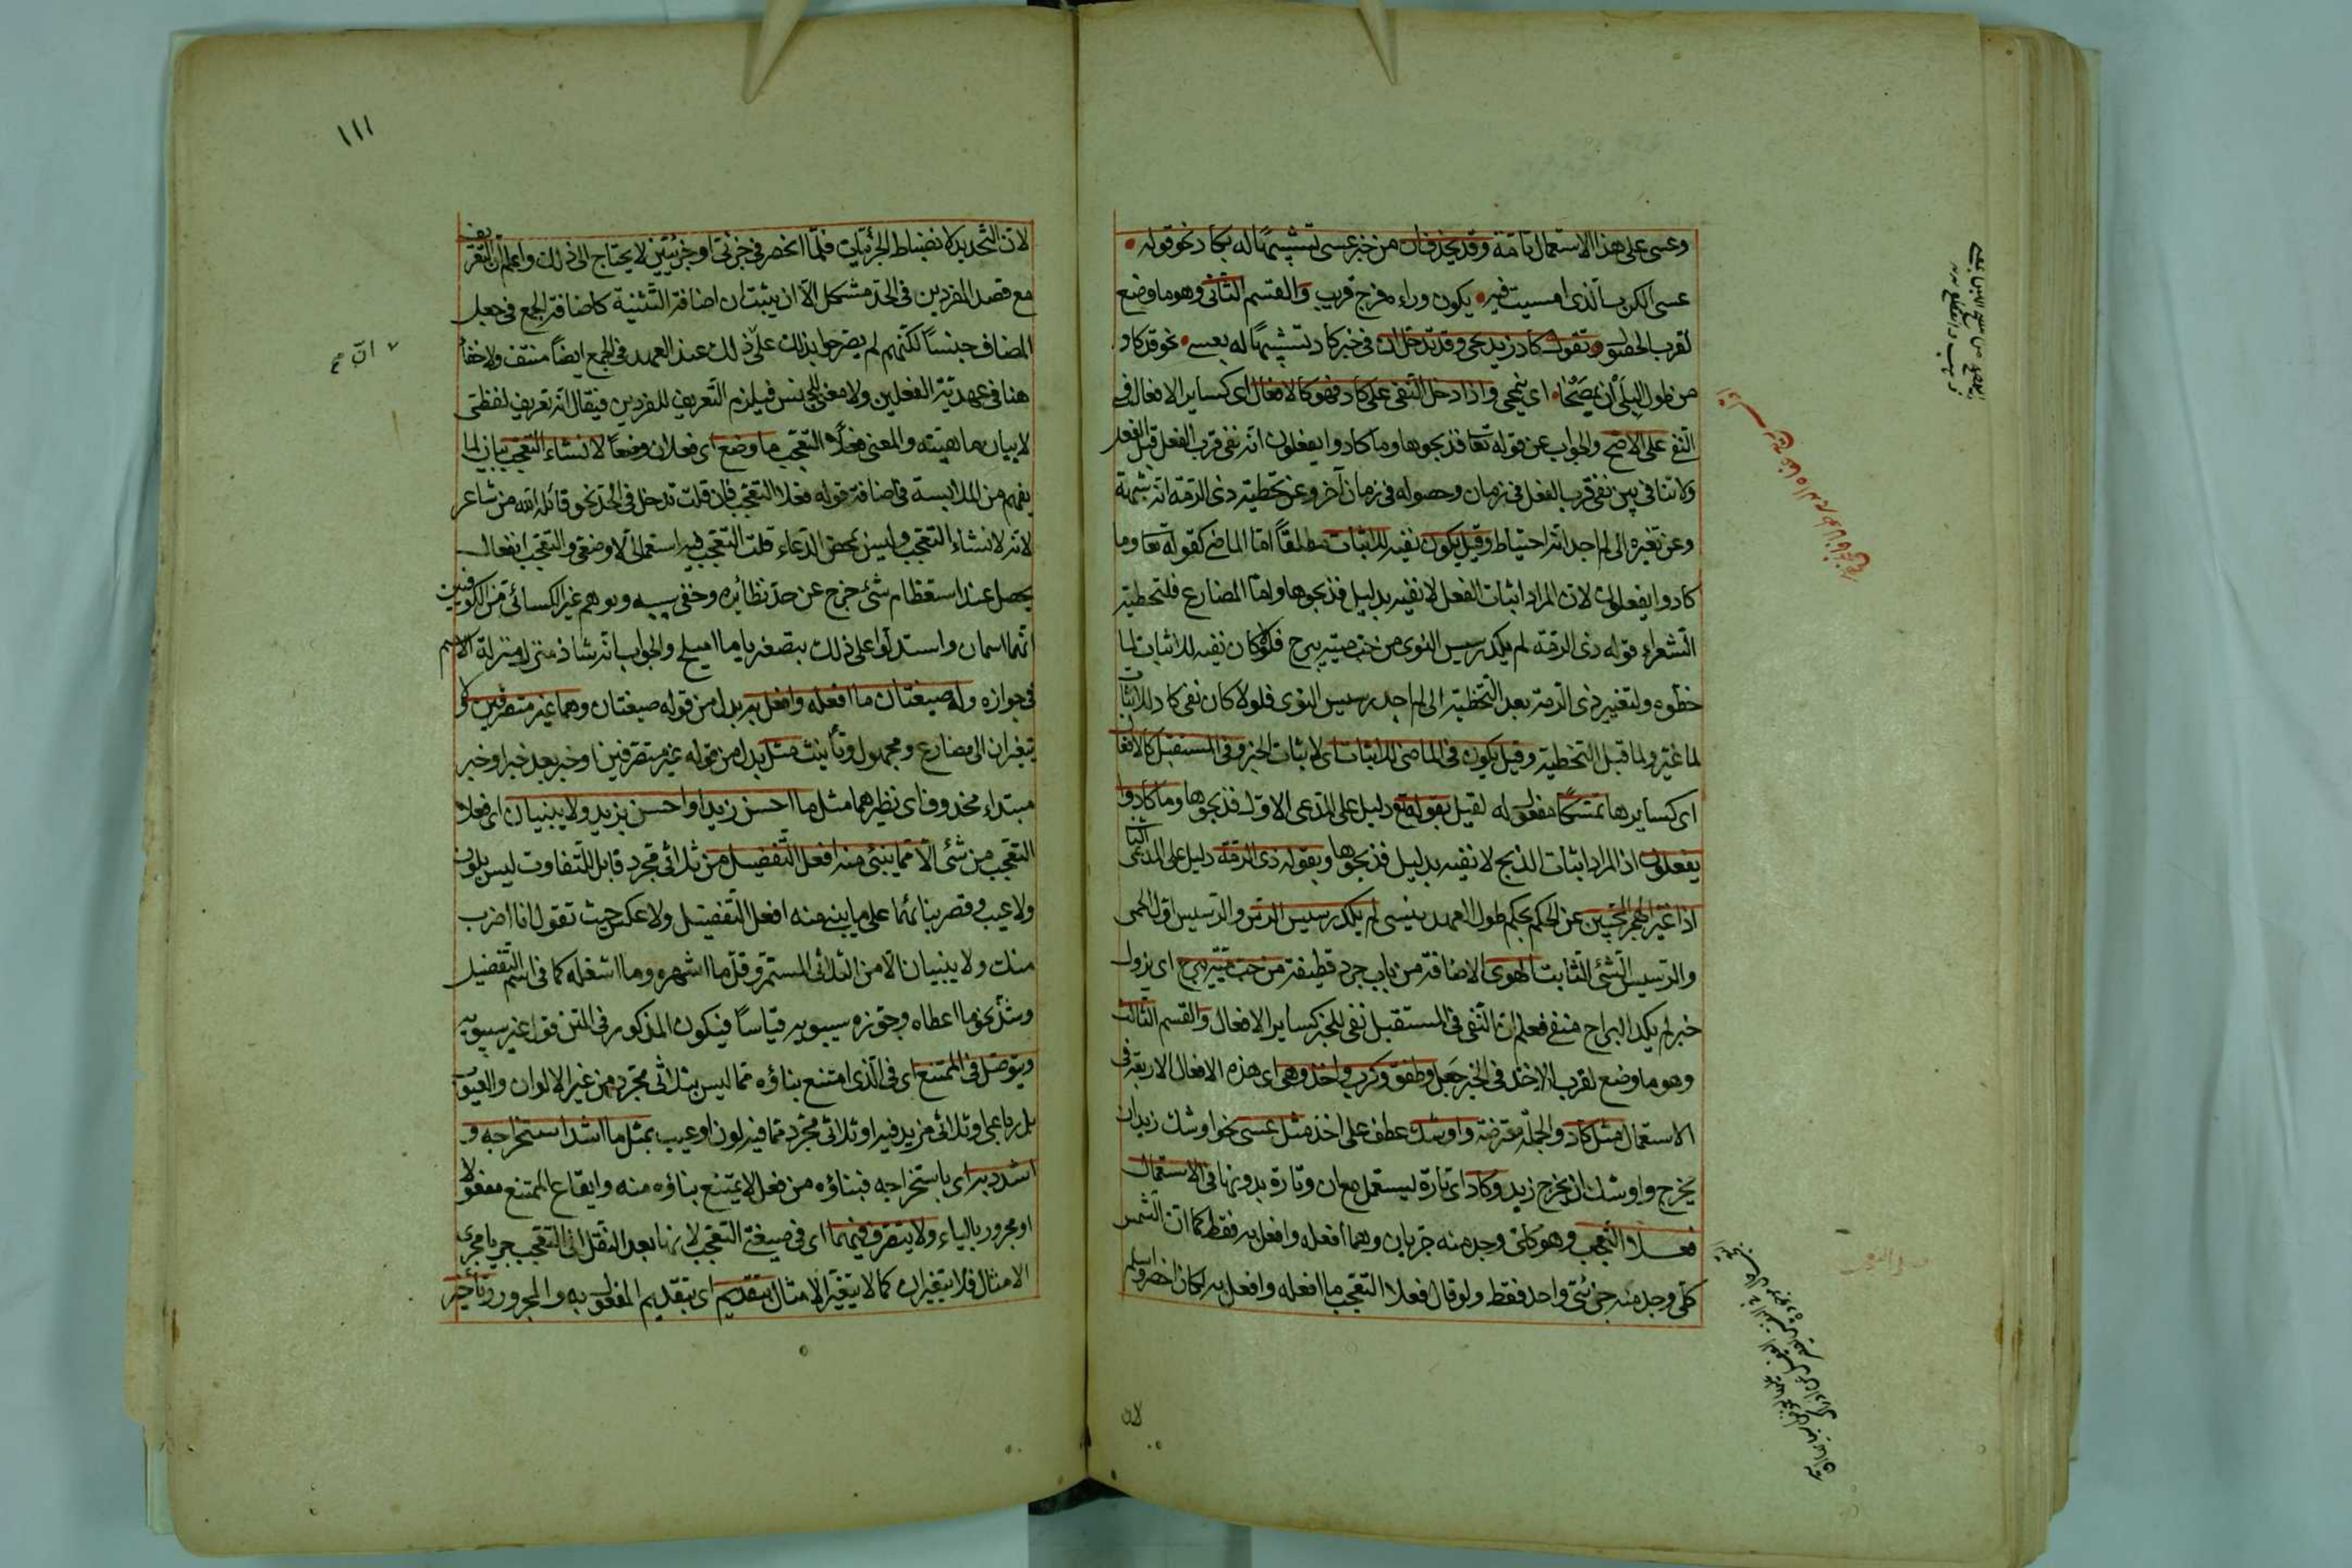 وعسى على هذا الاستعمال تامة وقد يحذف ان من خبر عسى تشبيهًا له بكاد نحو قوله
عسى الكرب الذى امسيت فيه يكون وراءه فرج قريب والقسم الثانى وهو ما وضع
لقرب الحصول وتقول كاد زيد يجئ وقد تدخل ان فى خبر كاد تشبيهًا له بعسى نحو قد كاد
من طول البلى أن يَمْصَحا اى ينمحى واذا دخل النفى على كاد فهو كالافعال اى كساير الافعال فى
النفى على الاصح والجواب عن قوله تعا فذبحوها وما كادوا يفعلون انه نفى قرب الفعل قبل الفعل
ولا تنافى بين نفى قرب الفعل فى زمان وحصوله فى زمان آخر وعن تخطية ذى الرمة انه
وعن تغيره الى لم اجد انه احتياط وقيل يكون نفيه للاثبات مطلقًا امّا الماضى كقوله تعا وما
كادوا يفعلون لان المراد اثبات الفعل لا نفيه بدليل فذبحوها وامّا المضارع فلتخطية
الشعراء قوله ذى الرمة لم يكد رسيس الهوى من حب مية يبرح فلولا كان نفيه للاثبات لما
خطّوه ولتغيير ذى الرمة بعد التخطية الى لم اجد رسيس الهوى فلولا كان نفى كاد للاثبات
لما غيّره ولما قبل التخطية وقيل يكون فى الماضى للاثبات اى لاثبات الخبر وفى المستقبل كالافعال
اى كسايرها تمسكًا مفعول له لقيل بقوله تع دليل على المدعى الاول فذبحوها وما كادوا
يفعلون اذ المراد اثبات الذبح لا نفيه بدليل فذبحوها وبقوله ذى الرمة دليل على المدعى الثانى
اذا غيّر الهجر المحبين عن الحكم بحكم طول العهد ينسى لم يكد رسيس الرسّ والرسيس اول الحمى
والرسيس الشئ الثابت الهوى الاضافة من باب جرد قطيفة من حب ميّة يبرح اى يزول
خبر لم يكد البراح منفى فعلم ان النفى فى المستقبل نفى للخبر كساير الافعال والقسم الثالث
وهو ما وضع لقرب الاخذ فى الخبر جعل وطفق وكرب واخذ وهى اى هذه الافعال الاربعة فى
الاستعمال مثل كاد والجملة معترضة واوشك عطف على اخذ مثل عسى نحو اوشك زيد ان
يخرج واوشك ان يخرج زيد وكاد اى تارة يستعمل مع ان وتارة بدونها فى الاستعمال
فعلا التعجب وهو كلىّ وجد منه جزيان وهما ما افعله وافعل به فقط كما ان الشمس
كلّى وجد منه جزئىّ واحد فقط ولو قال فعلا التعجب ما افعله وافعل به لكان اخصر واسلم
لان
١١١
لان التحديد لانضباط الجزئيات فلمّا انحصر فى جزئى او جزئيين لا يحتاج الى ذلك واعلم ان التعريف
مع قصد الفردين فى الحد مشكل الّا ان يثبت ان اضافة التثنية كاضافة الجمع فى جعل
المضاف جنسًا لكنهم لم يصرحوا بذلك على ذلك عند العهد فى الجمع ايضًا منتف ولا خفأ
هنا فى عهدية الفعلين ولا معنى للجنس فيلزم التعريف للفردين فيقال انه تعريف لفظى
لا بيان ماهيته والمعنى فعلا التعجب ما وضع اى فعلان وضعا لانشاء التعجب بيان لما
يفهم من الملابسة فى اضافة قوله فعلا التعجب فان قلت تدخل فى الحد نحو قاتله الله من شاعر
لانه لانشاء التعجب وليس بمحض الدعاء قلت التعجب فيه استعمالىّ لا وضعى والتعجب انفعال
يحصل عند استعظام شئ خرج عن حد نظائره وخفى سببه وتوهم غير الكسائى من الكوفيين
انهما اسمان واستدلّوا على ذلك بتصغير ياما اميلح والجواب انه شاذ منزل منزلة الاسم
فى جوازه وله صيغتان ما افعله وافعل به بدل من قوله صيغتان وهما غير متصرفين لا
يتغيران الى مضارع ومجهول وتأنيث مثل بدل من قوله غير متصرفين او خبر بعد خبر او خبر
مبتداء محذوف اى نظيرهما مثل ما احسن زيدا واحسن بزيد ولا يبنيان اى فعلا
التعجب من شئ الّا ممّا يبنى منه افعل التفضيل من ثلاثى مجرد قابل للتفاوت ليس بلون
ولا عيب وقصر بنائهما على ما يبنى منه افعل التفضيل ولا عكس حيث تقول انا اضرب
منك ولا يبنيان الّا من الثلاثى المستمرّ وقلّ ما اشهره وما اشغله كما فى اسم التفضيل
وشذّ نحو ما اعطاه وجوّزه سيبويه قياسًا فيكون المذكور فى المتن قول غير سيبويه
ويتوصل فى الممتنع اى فى الذى امتنع بناؤه ممّا ليس بثلاثى مجرد من غير الالوان والعيوب
بل رباعى او ثلاثى مزيد فيه او ثلاثى مجرد ممّا فيه لون او عيب بمثل ما اشد استخراجه و
اشدد به اى باستخراجه فبناؤه من فعل لا يمتنع بناؤه منه وايقاع الممتنع مفعولا
او مجرورا بالباء ولا يتصرف فيهما اى فى صيغتى التعجب لانهما بعد النقل الى التعجب جريا مجرى
الامثال فلا يتغيران كما لا يتغير الامثال بتقديم اى بتقديم المفعول به والمجرور وتأخير